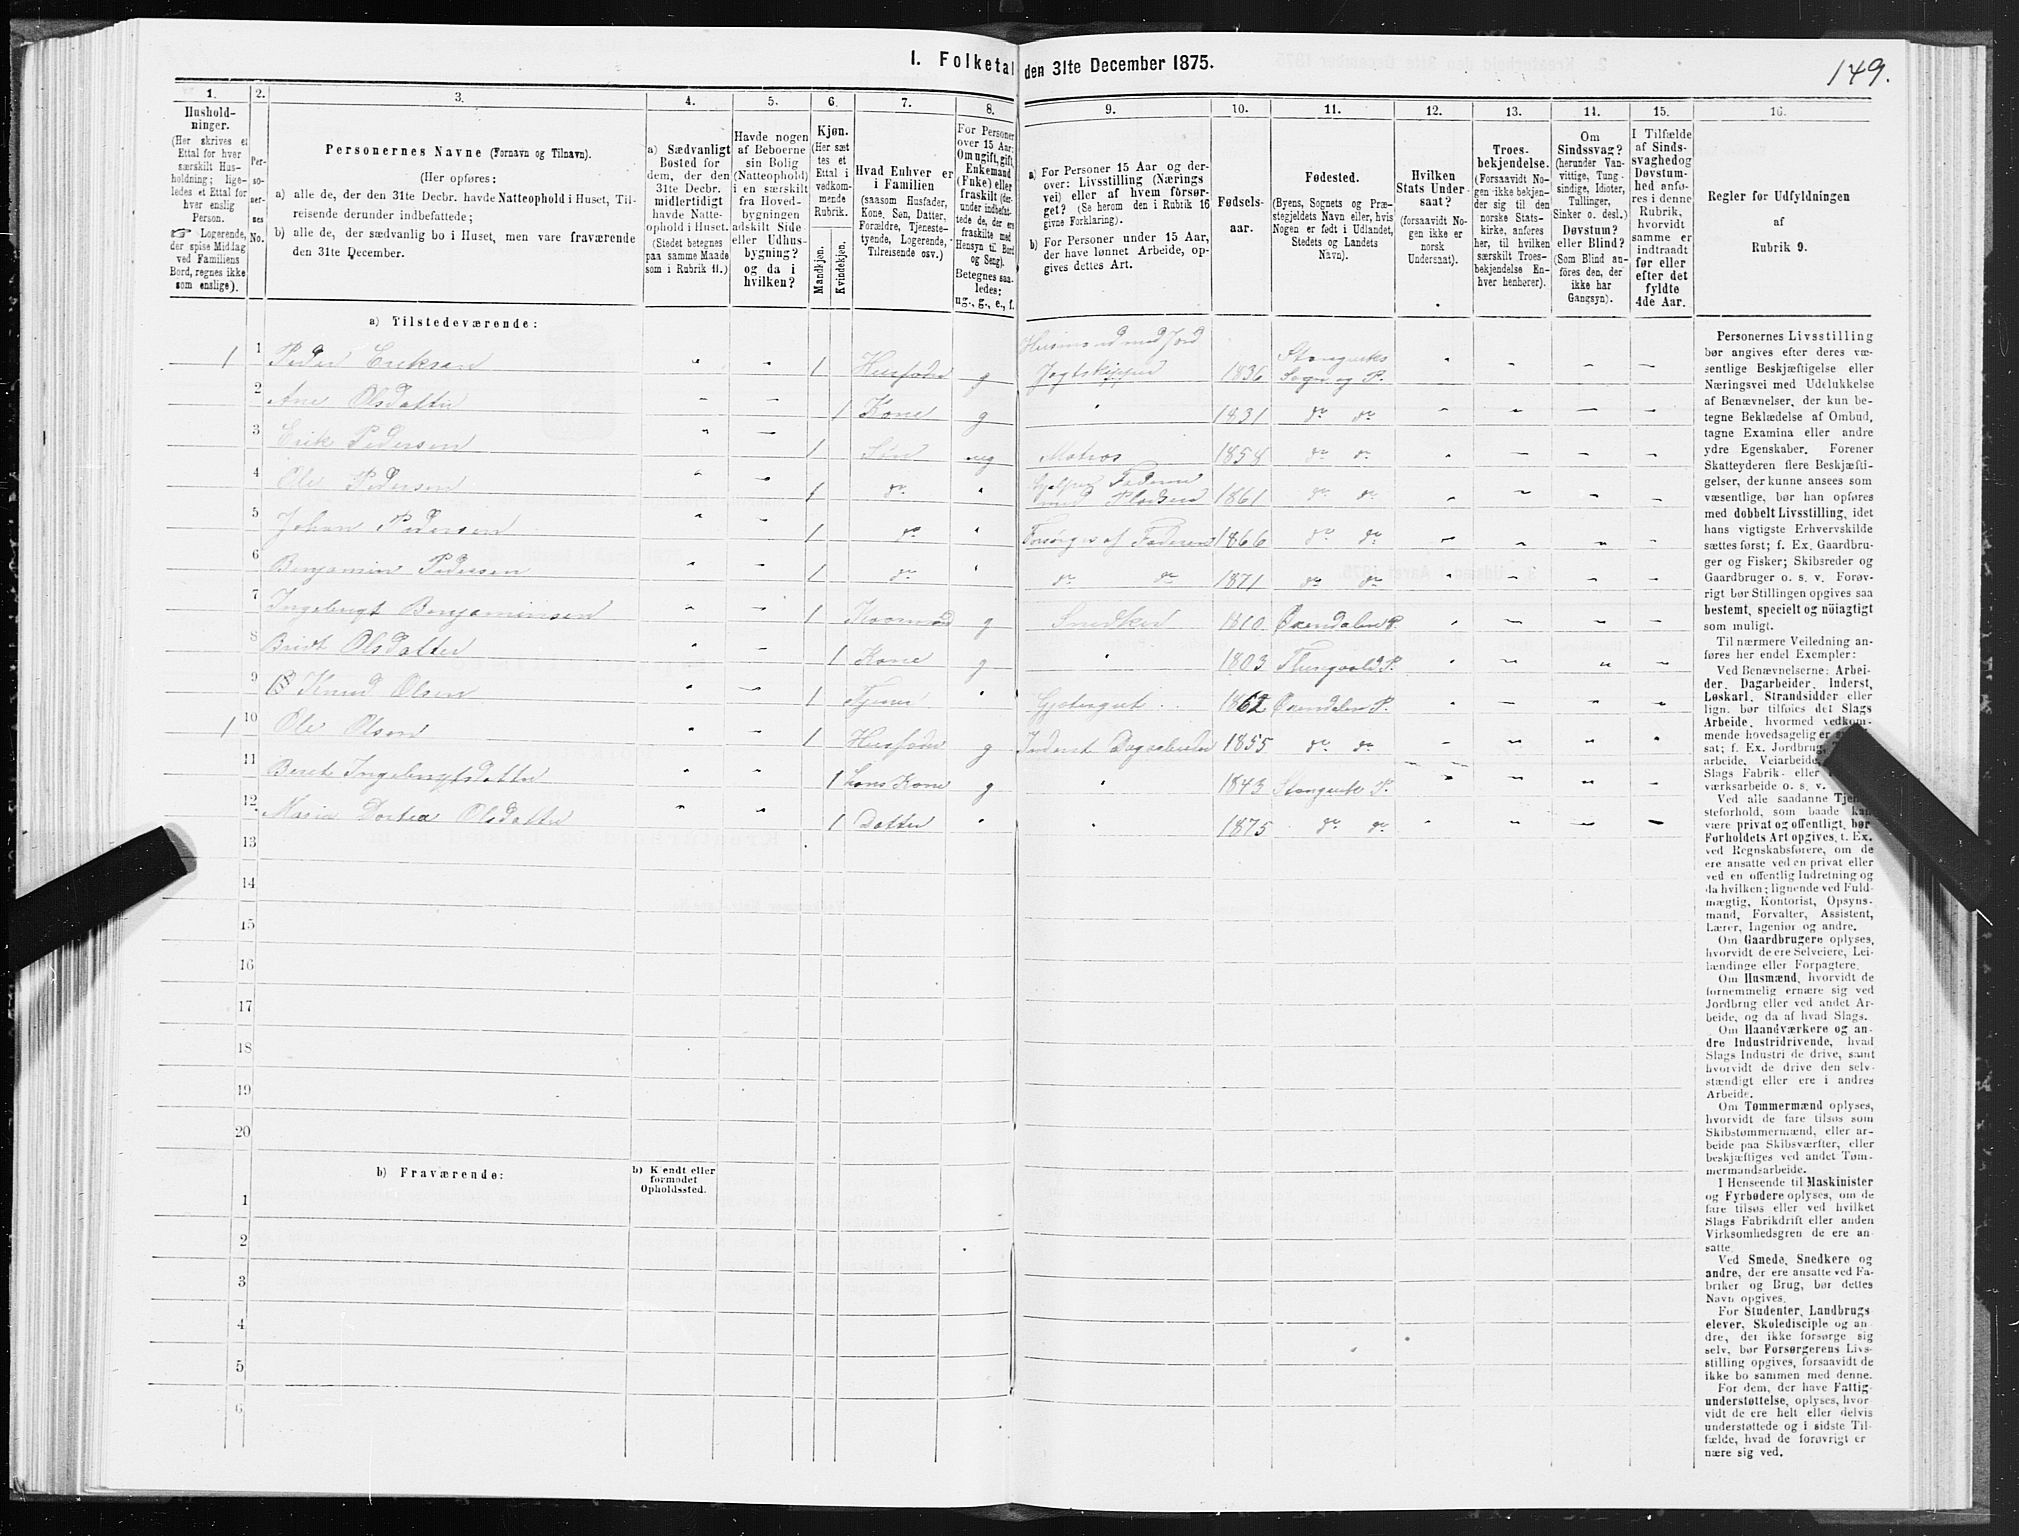 149.
I. Folketal den 31te December 1875.
1. 2. 3. 4. 5. 6. 7. 8. 9. 10. 11. 12. 13. 14. 15. 16.
Hushold-
ninger.
(Her skrives et
Ettal for hver
særskilt Hus-
holdning; lige-
ledes et Ettal for
hver enslig
Person.
☞ Logerende,
der spise Middag
ved Familiens
Bord, regnes ikke
som enslige).
Per-
so-
ner-
nes
No.
Personernes Navne (Fornavn og Tilnavn).
(Her opføres:
a) alle de, der den 31te Decbr. havde Natteophold i Huset, Til-
reisende derunder indbefattede;
b) alle de, der sædvanlig bo i Huset, men vare fraværende
den 31te December.
a) Sædvanligt
Bosted for
dem, der den
31te Decbr.
midlertidigt
havde Natte-
ophold i Huset.
(Stedet betegnes
paa samme Maade
som i Rubrik 11.)
Havde nogen
af Beboerne
sin Bolig
(Natteophold)
i en særskilt
fra Hoved-
bygningen
adskilt Side-
eller Udhus-
bygning?
og da i
hvilken?
Kjøn.
(Her sæt
tes et
Ettal i
vedkom-
mende
Rubrik.
Mandkjøn.
Kvindekjøn.
Hvad Enhver er
i Familien
(saasom Husfader,
Kone, Søn, Datter,
Forældre, Tjeneste-
tyende, Logerende,
Tilreisende osv.)
For Personer
over 15 Aar:
Om ugift, gift,
Enkemand
(Enke) eller
fraskilt (der-
under indbefat-
tede de, der ere
fraskilte med
Hensyn til Bord
og Seng).
Betegnes saa-
ledes:
ug., g., e., f.
a) For Personer 15 Aar og der-
over: Livsstilling (Nærings
vei) eller af hvem forsør-
get? (Se herom den i Rubrik 16
givne Forklaring).
b) For Personer under 15 Aar,
der have lønnet Arbeide, op-
gives dettes Art.
Fødsels-
aar.
Fødested.
(Byens, Sognets og Præ-
stegjeldets Navn eller, hvis
Nogen er født i Udlandet,
Stedets og Landets
Navn).
Hvilken
Stats Under-
saat?
(forsaavidt No-
gen ikke er
norsk
Undersaat).
Troes-
bekjendelse.
(Forsaavidt No-
gen ikke bekjen-
der sig til den
norske Stats-
kirke, anføres
her, til hvilken
særskilt Troes-
bekjendelse En-
hver henhører).
Om
Sindssvag?
(herunder Van-
vittige, Tung-
sindige, Idioter,
Tullinger,
Sinker o. desl.)
Døvstum?
eller Blind?
(Som Blind an-
føres den, der
ikke har
Gangsyn).
I Tilfælde
af Sinds-
svaghed og
Døvstum-
hed anfø-
res i denne
Rubrik,
hvorvidt
samme er
indtraadt
før eller
efter det
fyldte
4de Aar.
Regler for Udfyldningen
af
Rubrik 9.
a) Tilstedeværende:
1 1 Peder Eriksen 1 Husfader g Husmand med Jord Jagtskipper 1836 Stangviks Sogn og P.
2 Ane Olsdatter 1 Kone g 1831 do do
3 Erik Pedersen 1 Søn ug Matros 1858 do do
4 Ole Pedersen 1 do Hjelper Faderen med Pladsen 1861 do do
5 Johan Pedersen 1 do Forsørges af Faderen 1866 do do
6 Benjamin Pedersen 1 do do do 1871 do do
7 Ingebrigt Benjaminsen 1 g Snedker 1810 Øxendalen P.
8 Bridt Olsdatter 1 Kone g 1803 Thingvold P.
9 Knud Olsen 1 Tjener Gjetergut 1862 Øxendalen P.
1 10 Ole Olsen 1 Husfader g Inderst Dagarbeider 1855 do do
11 Beret Ingebrigtsdatter 1 hans Kone g 1843 Stangvik P.
12 Maria Dortea Olsdatter 1 Datter 1875 do do
13
14
15
16
17
18
19
20
b) Fraværende:
b) Kjendt eller
formodet
Opholdssted.
1
2
3
4
5
6
Personernes Livsstilling
bør angives efter deres væ-
sentlige Beskjæftigelse eller
Næringsvei med Udelukkelse
af Benævnelser, der kun be-
tegne Beklædelse af Ombud,
tagne Examina eller andre
ydre Egenskaber. Forener
Skatteyderen flere Beskjæfti-
gelser, der kunne ansees som
væsentlige, bør han opføres
med dobbelt Livsstilling, idet
hans vigtigste Erhvervskilde
sættes først; f. Ex. Gaardbru-
ger og Fisker; Skibsreder og
Gaardbruger o. s. v. Forøv-
rigt bør Stillingen opgives saa
bestemt, specielt og nöiagtigt
som muligt.
Til nærmere Veiledning an-
føres her endel Exempler:
Ved Benævnelserne: Arbei-
der, Dagarbeider, Inderst,
Løskarl, Strandsidder eller
lign. bør tilføies det Slags
Arbeide, hvormed vedkom-
mende hovedsagelig er
sat; f. Ex. Jordbrug,
arbeide, Veiarbeide,
Slags Fabrik- eller
værksarbeide o. s. v.
Ved alle saadanne Tjene-
steforhold, som baade kan
være privat og offentligt, bør
Forholdets Art opgives, t. Ex.
ved Regnskabsførere, om de
ere ansatte ved en privat eller
ved en offentlig Indretning og
da hvilken; lignende ved Fuld-
mægtig, Kontorist, Opsyns-
mand, Forvalter, Assistent,
Lærer, Ingeniør og andre.
Om Gaardbrugere oplyses,
hvorvidt de ere Selveiere, Lei-
lændinge eller Forpagtere.
Om Husmænd, hvorvidt de
fornemmelig ernære sig ved
Jordbrug eller ved andet Ar-
beide, og da af hvad Slags.
Om Haandværkere og an-
dre Industridrivende, hvad
Slags Industri de drive, samt
hvorvidt de drive den selv-
stændigt eller ere i andres
Arbeide.
Om Tømmermænd oplyses,
hvorvidt de fare tilsøs som
Skibstømmermænd, eller ar-
beide paa Skibsværfter, eller
beskjæftiges ved andet Tøm-
mermandsarbeide.
I Henseende til Maskinister
og Fyrbødere oplyses, om de
fare tilsøs eller ved hvilket
Slags Fabrikdrift eller anden
Virksomhedsgren de ere an-
satte.
Ved Smede, Snedkere og
andre, der ere ansatte ved Fa-
briker og Brug, bør dettes
Navn opgives.
For Studenter, Landbrugs-
elever, Skoledisciple og an-
dre, der ikke forsørge sig
selv, bør Forsørgerens Livs-
stilling opgives, forsaavidt de
ikke bo sammen med denne.
For dem, der have Fattig-
understøttelse, oplyses, hvor-
vidt de ere helt eller delvis
understøttede og i sidste Til-
fælde, hvad de forøvrigt er-
nære sig ved.